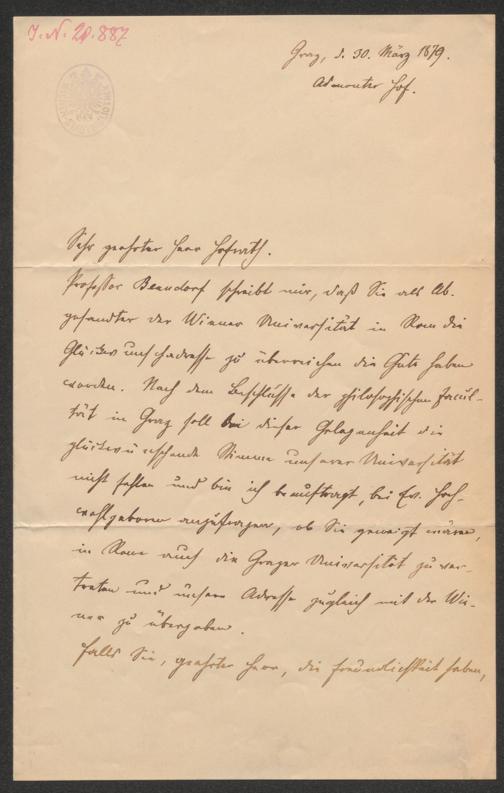 J. N. 20.887
Graz, d. 30. März 1879.
Admonter Hof.
Sehr geehrter Herr Hofrath.
Professor Benndorf schreibt mir, daß Sie als Ab-
gesandter der Wiener Universität in Rom die
Glückwunschadresse zu überreichen die Güte haben
werden. Nach dem Beschlusse der philosophischen Facul-
tät in Graz soll bei dieser Gelegenheit die
glückwünschende Stimme unserer Universität
nicht fehlen und bin ich beauftragt, bei Ew. Hoch-
wohlgeboren anzufragen, ob Sie geneigt wären,
in Rom auch die Grazer Universität zu ver-
treten und unsere Adresse zugleich mit der Wie-
ner zu übergeben.
Falls Sie, geehrter Herr, die Freundlichkeit haben,